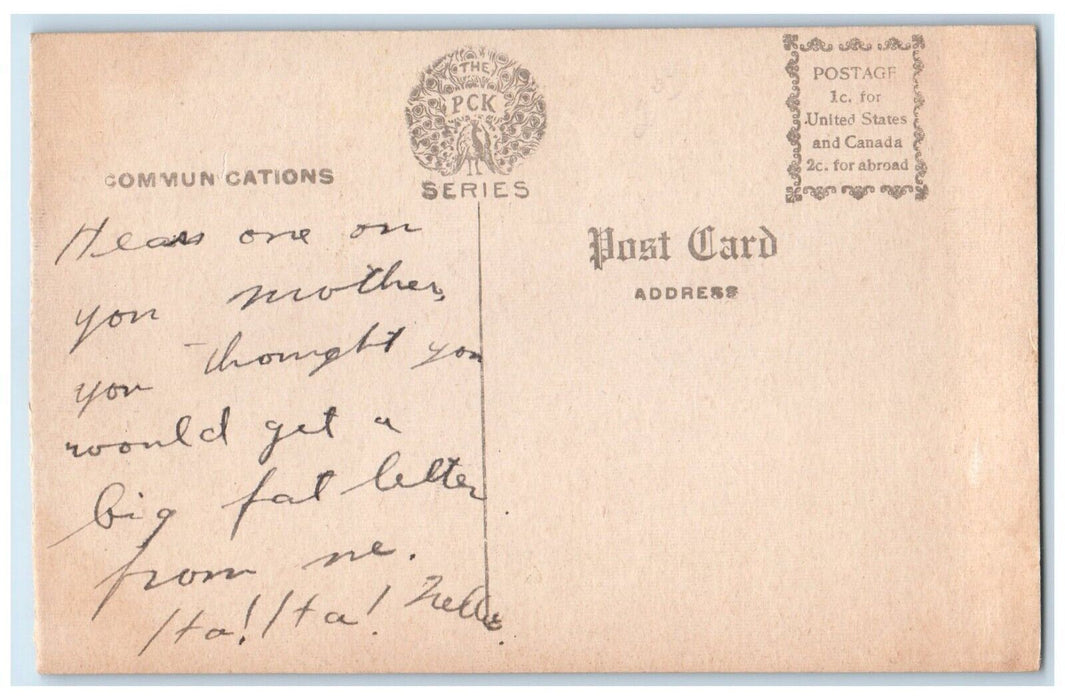 THE
PCK
SERIES
POSTAGE
1c. for
United States
and Canada
2c. for abroad
COMMUNICATIONS
Post Card
ADDRESS
Hears one on
you mother,
you thought you
would get a
big fat letter
from me.
Ha! Ha!